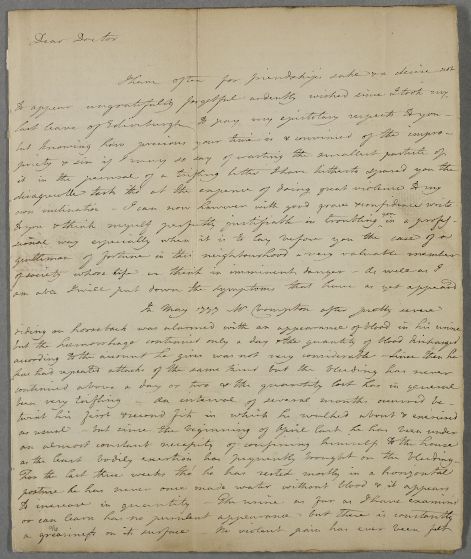 Dear Doctor
I have often for friendships sake & a desire not
to appear ungratefully forgetful ardently wished since I took my
last leave of Edinburgh to pay my epistolary respects to you -
but knowing how precious your time is & convinced of the impro-
priety & sin if I may so say of wasting the smallest particle of
it in the perusal of a trifling letter I have hitherto spared you the
disagreable task tho at the expence of doing great violence to my
own inclination - I can now however with good grace & confidence write
to you & think myself perfectly justifiable in troubling you in a profes-
sional way especially when it is to lay before you the case of a
gentleman of fortune in this neighbourhood a very valuable member
of society whose life we think in imminent danger - As well as I
am able I will put down the symptoms that have as yet appeared
In May 1777 Mr Crompton after pretty severe
riding on horseback was alarmed with an appearance of blood in his urine
but the hemorrhage continued only a day & the quantity of blood discharged
according to the account he gives was not very considerable - since then he
has had repeated attacks of the same kind but the bleeding has never
continued above a day or two & the quantity lost has in general
been very trifling - An interval of several months occurred be-
twixt his first & second fits in which he walked about & exercised
as usual - but since the beginning of April last he has been under
an almost constant necessity of confining himself to the house
as the least bodily exertion has frequently brought on the bleeding -
For the last three weeks tho he has rested mostly in a horizontal
posture he has never once made water without blood & it appears
to increase in quantity - The urine as far as I have examined
or can learn has no purulent appearance - but there is constantly
a greasiness on its surface No violent pain has ever been felt